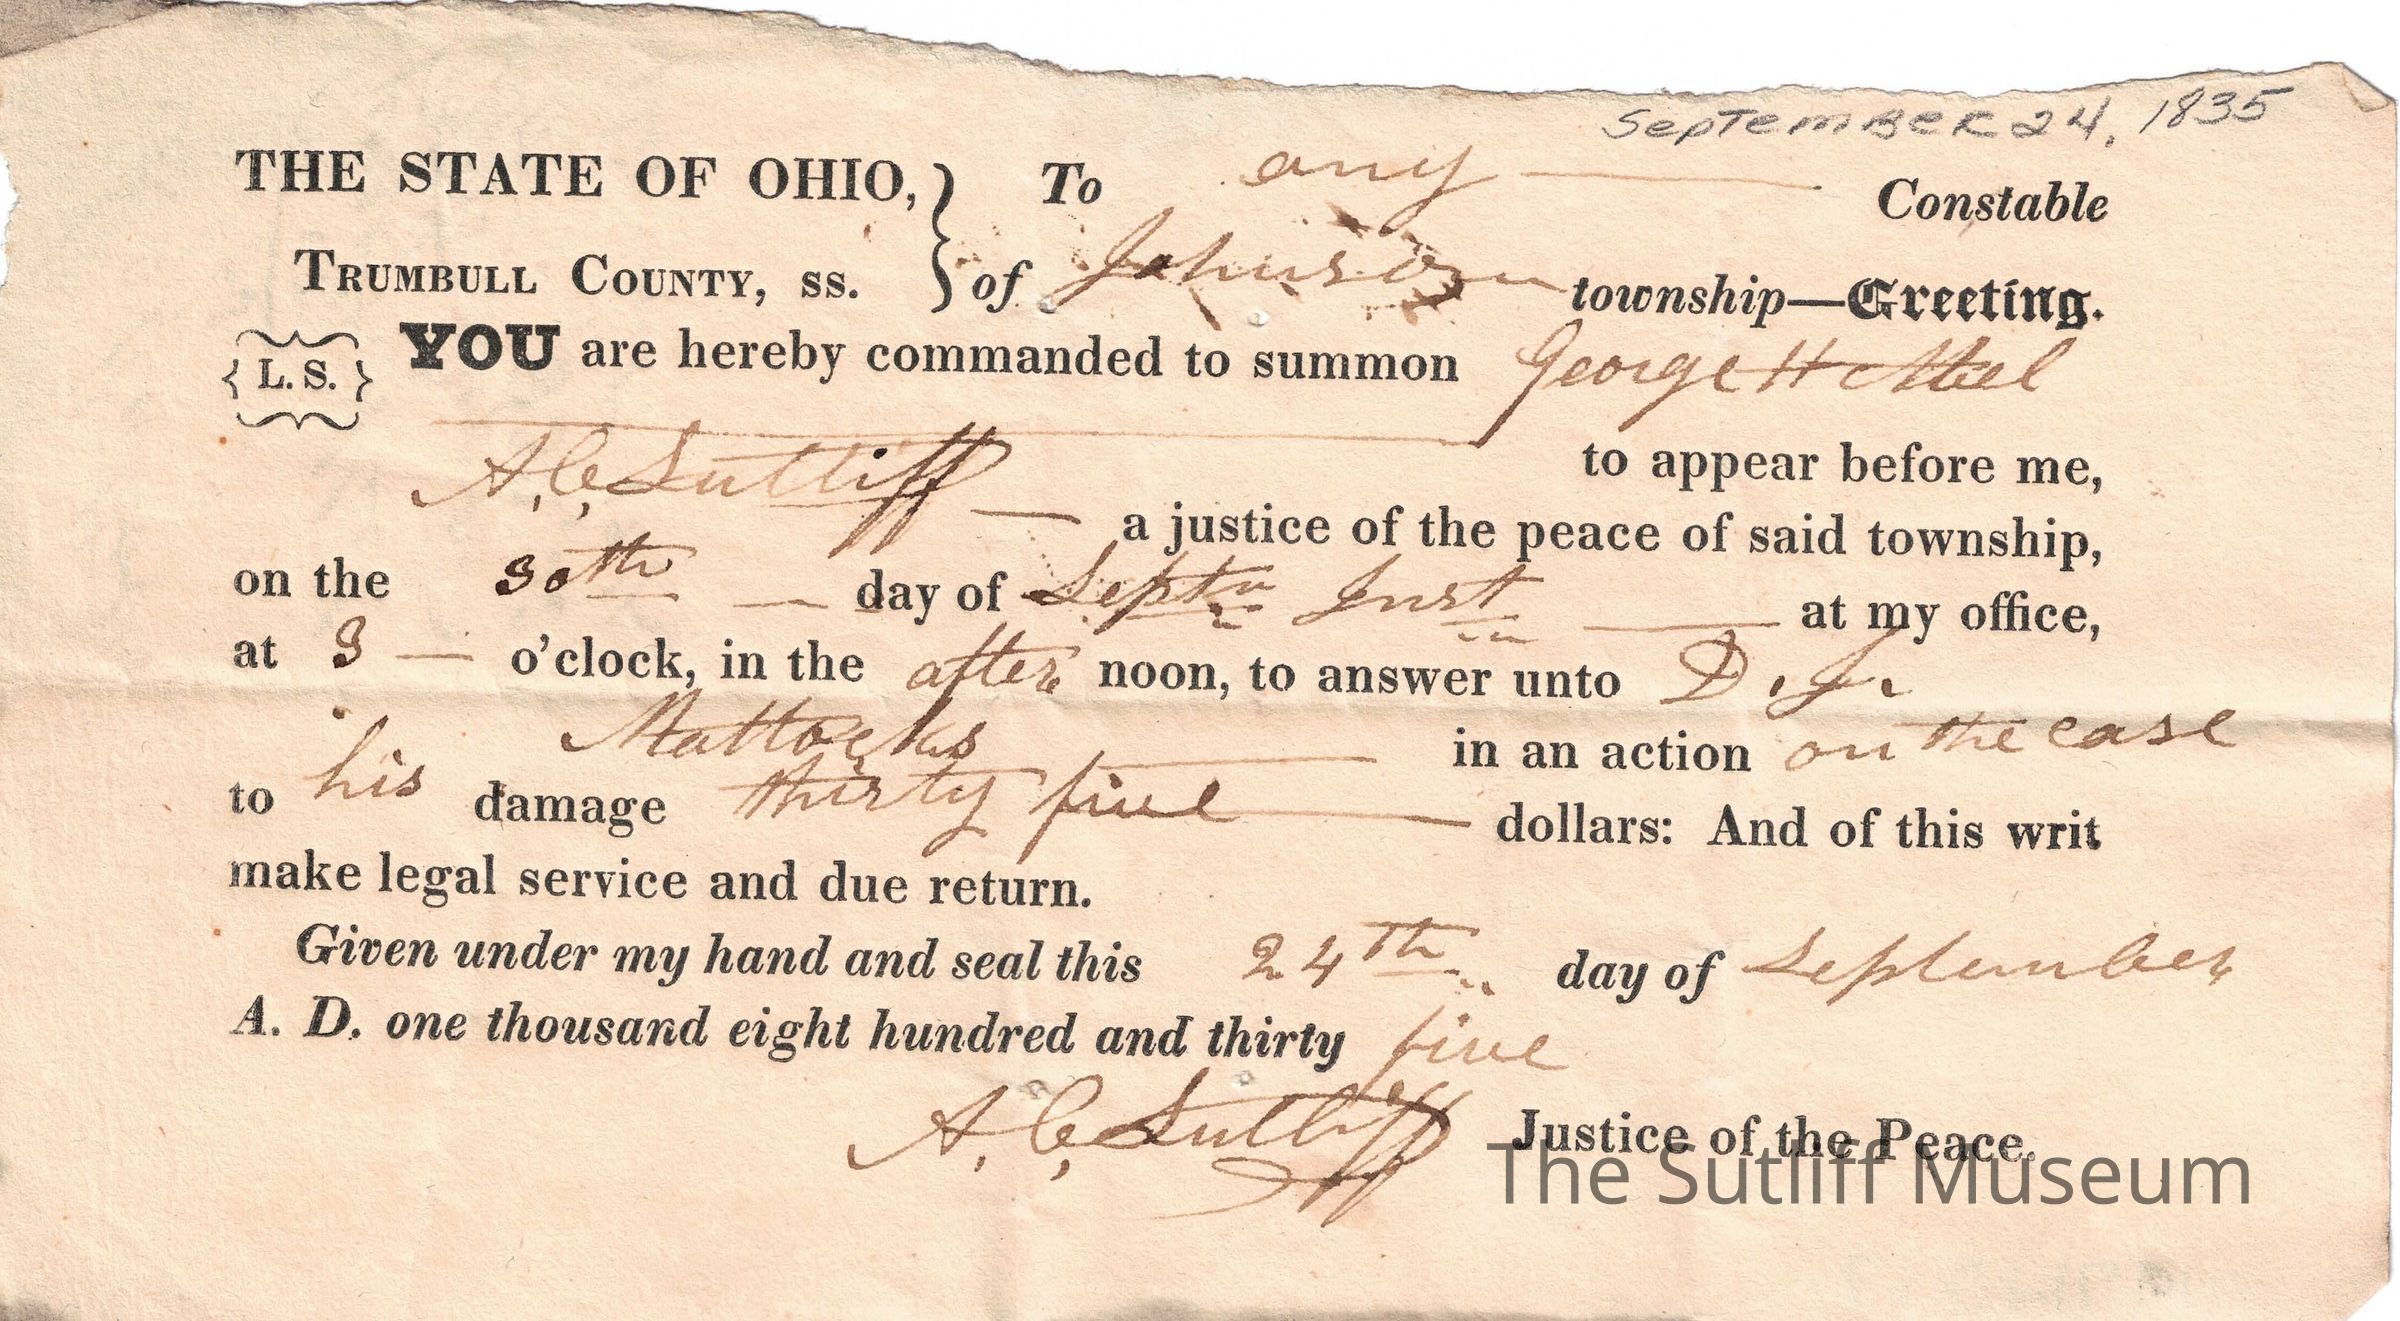 September 24, 1835
THE STATE OF OHIO, To any Constable
TRUMBULL COUNTY, ss. of Johnson township—Greeting.
L. S. YOU are hereby commanded to summon George H
to appear before me,
A. C. Sutliff a justice of the peace of said township,
on the 30th day of Septr Inst at my office,
at 3 o'clock, in the after noon, to answer unto D. J.
Mattocks in an action on the case
to his damage thirty five dollars: And of this writ
make legal service and due return.
Given under my hand and seal this 24th day of September
A. D. one thousand eight hundred and thirty five
A. C. Sutliff Justice of the Peace.
The Sutliff Museum